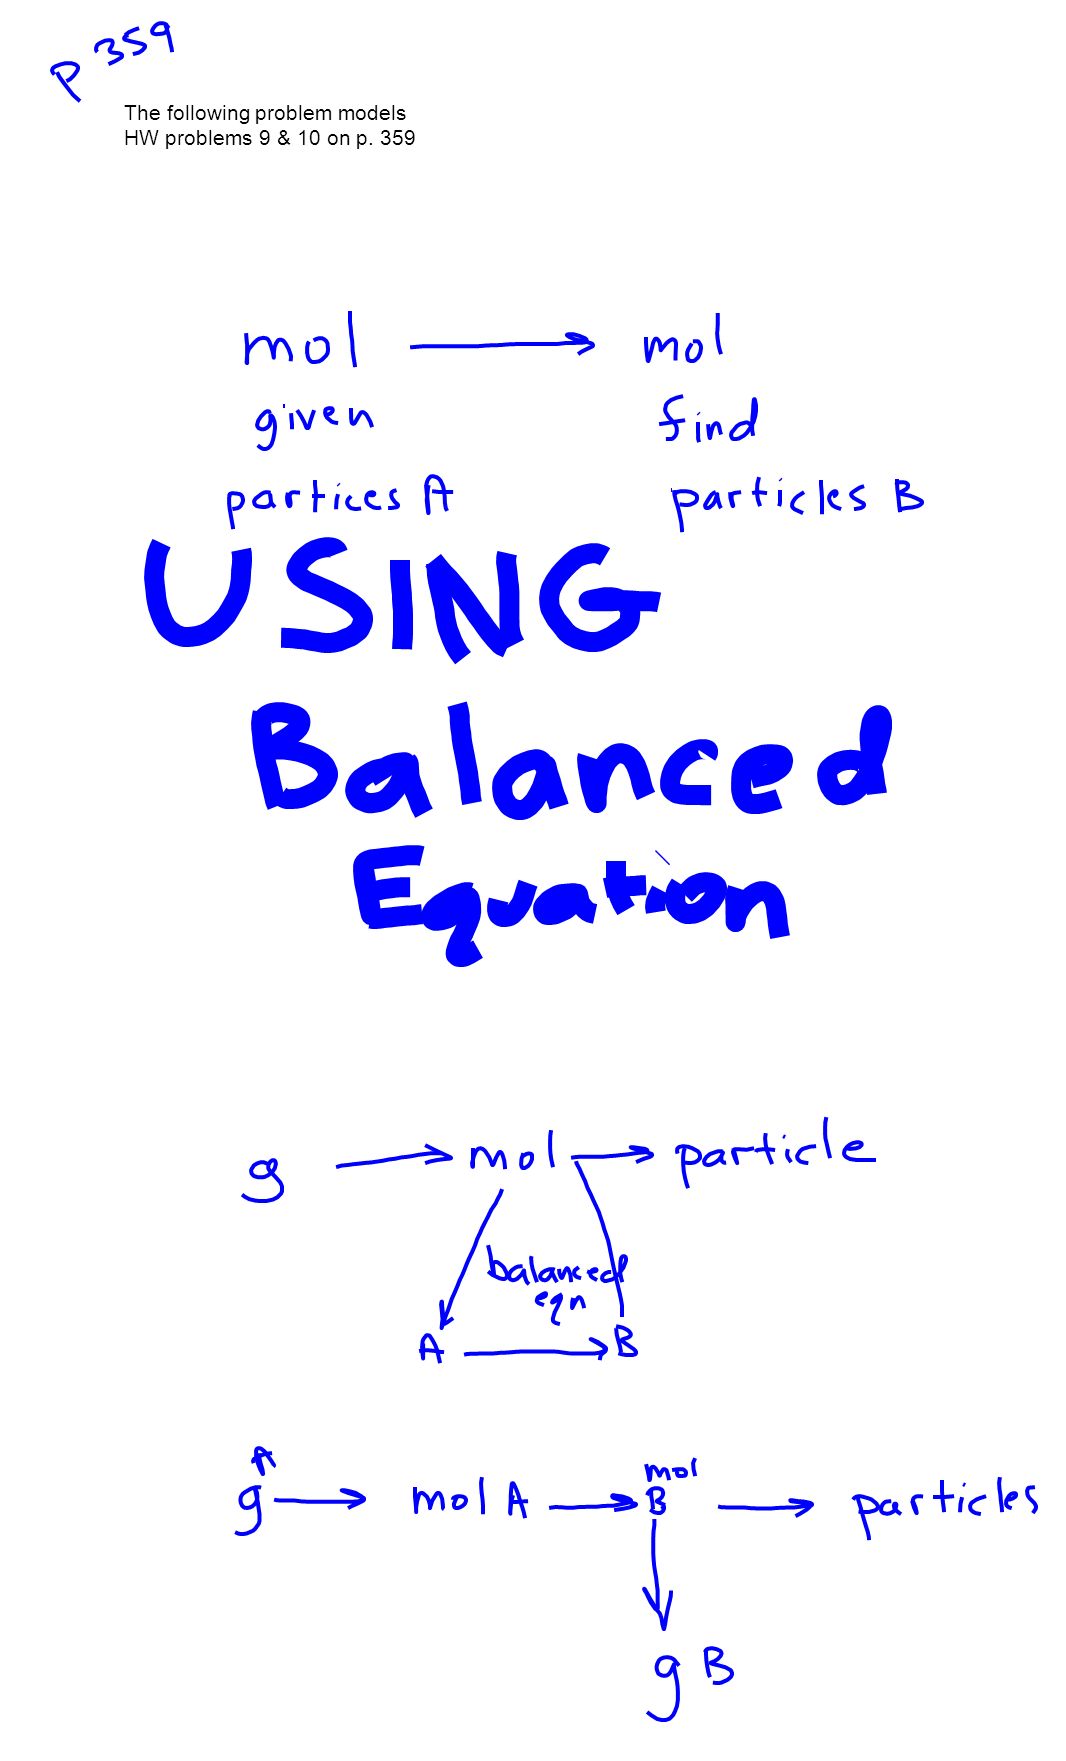 p 359
The following problem models
HW problems 9 & 10 on p. 359
mol → mol
given find
partices A particles B
USING
Balanced
Equation
g → mol → particle
balanced
eqn
A → B
A mol
g → mol A → B → particles
g B